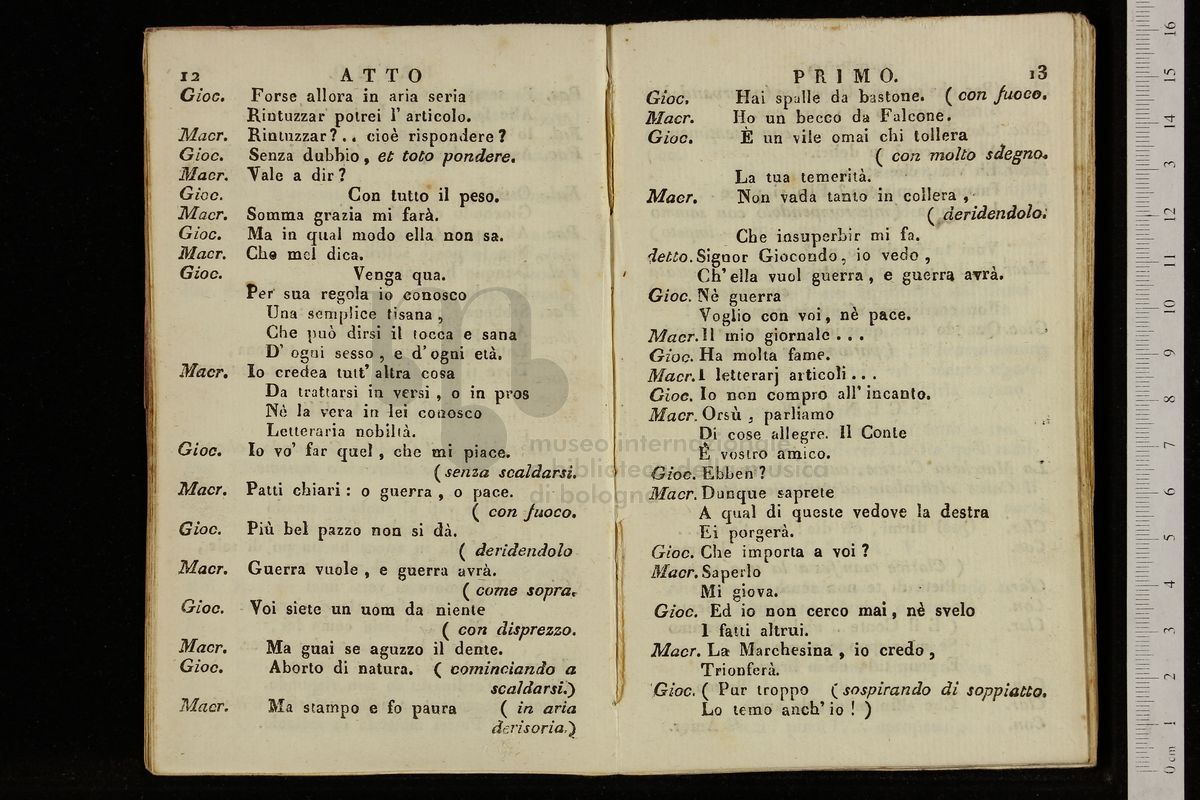 12 ATTO
Gioc. Forse allora in aria seria
Rintuzzar potrei l' articolo.
Macr. Rintuzzar?.. cioè rispondere?
Gioc. Senza dubbio, et toto pondere.
Macr. Vale a dir?
Gioc. Con tutto il peso.
Macr. Somma grazia mi farà.
Gioc. Ma in qual modo ella non sa.
Macr. Che mel dica.
Gioc. Venga qua.
Per sua regola io conosco
Una semplice tisana,
Che può dirsi il tocca e sana
D' ogni sesso, e d' ogni età.
Macr. Io credea tutt' altra cosa
Da trattarsi in versi, o in pros
Nè la vera in lei conosco
Letteraria nobiltà.
Gioc. Io vo' far quel, che mi piace.
(senza scaldarsi.
Macr. Patti chiari: o guerra, o pace.
( con fuoco.
Gioc. Più bel pazzo non si dà.
( deridendolo
Macr. Guerra vuole, e guerra avrà.
( come sopra.
Gioc. Voi siete un uom da niente
( con disprezzo.
Macr. Ma guai se aguzzo il dente.
Gioc. Aborto di natura. ( cominciando a
scaldarsi.)
Macr. Ma stampo e fo paura ( in aria
derisoria.)
PRIMO. 13
Gioc. Hai spalle da bastone. ( con fuoco.
Macr. Ho un becco da Falcone.
Gioc. È un vile omai chi tollera
( con molto sdegno.
La tua temerità.
Macr. Non vada tanto in collera,
( deridendolo.
Che insuperbir mi fa.
detto. Signor Giocondo, io vedo,
Ch' ella vuol guerra, e guerra avrà.
Gioc. Nè guerra
Voglio con voi, nè pace.
Macr. Il mio giornale...
Gioc. Ha molta fame.
Macr. I letterarj articoli...
Gioc. Io non compro all' incanto.
Macr. Orsù, parliamo
Di cose allegre. Il Conte
È vostro amico.
Gioc. Ebben?
Macr. Dunque saprete
A qual di queste vedove la destra
Ei porgerà.
Gioc. Che importa a voi?
Macr. Saperlo
Mi giova.
Gioc. Ed io non cerco mai, nè svelo
I fatti altrui.
Macr. La Marchesina, io credo,
Trionferà.
Gioc. ( Pur troppo ( sospirando di soppiatto.
Lo temo anch' io! )
museo internazionale
e biblioteca della musica
di bologna
0 cm 1 2 3 4 5 6 7 8 9 10 11 12 13 14 15 16